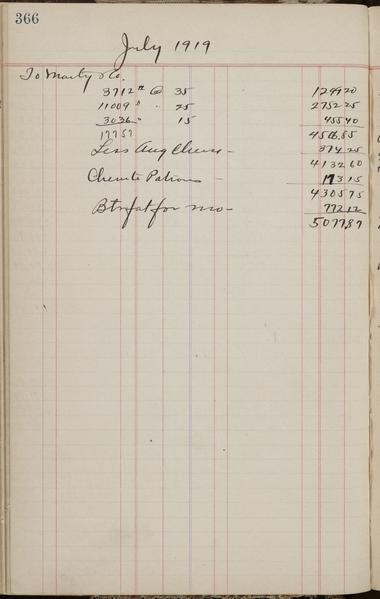 366
July 1919
To Marty & Co.
3712 # @ 35 129920
11009 " " 25 275225
3036 " 15 45540
17757 4506.85
Less Aug Cheese - 37425
413260
Cheese to Patrons - 17315
430575
Btrfat for mo - 77212
507787